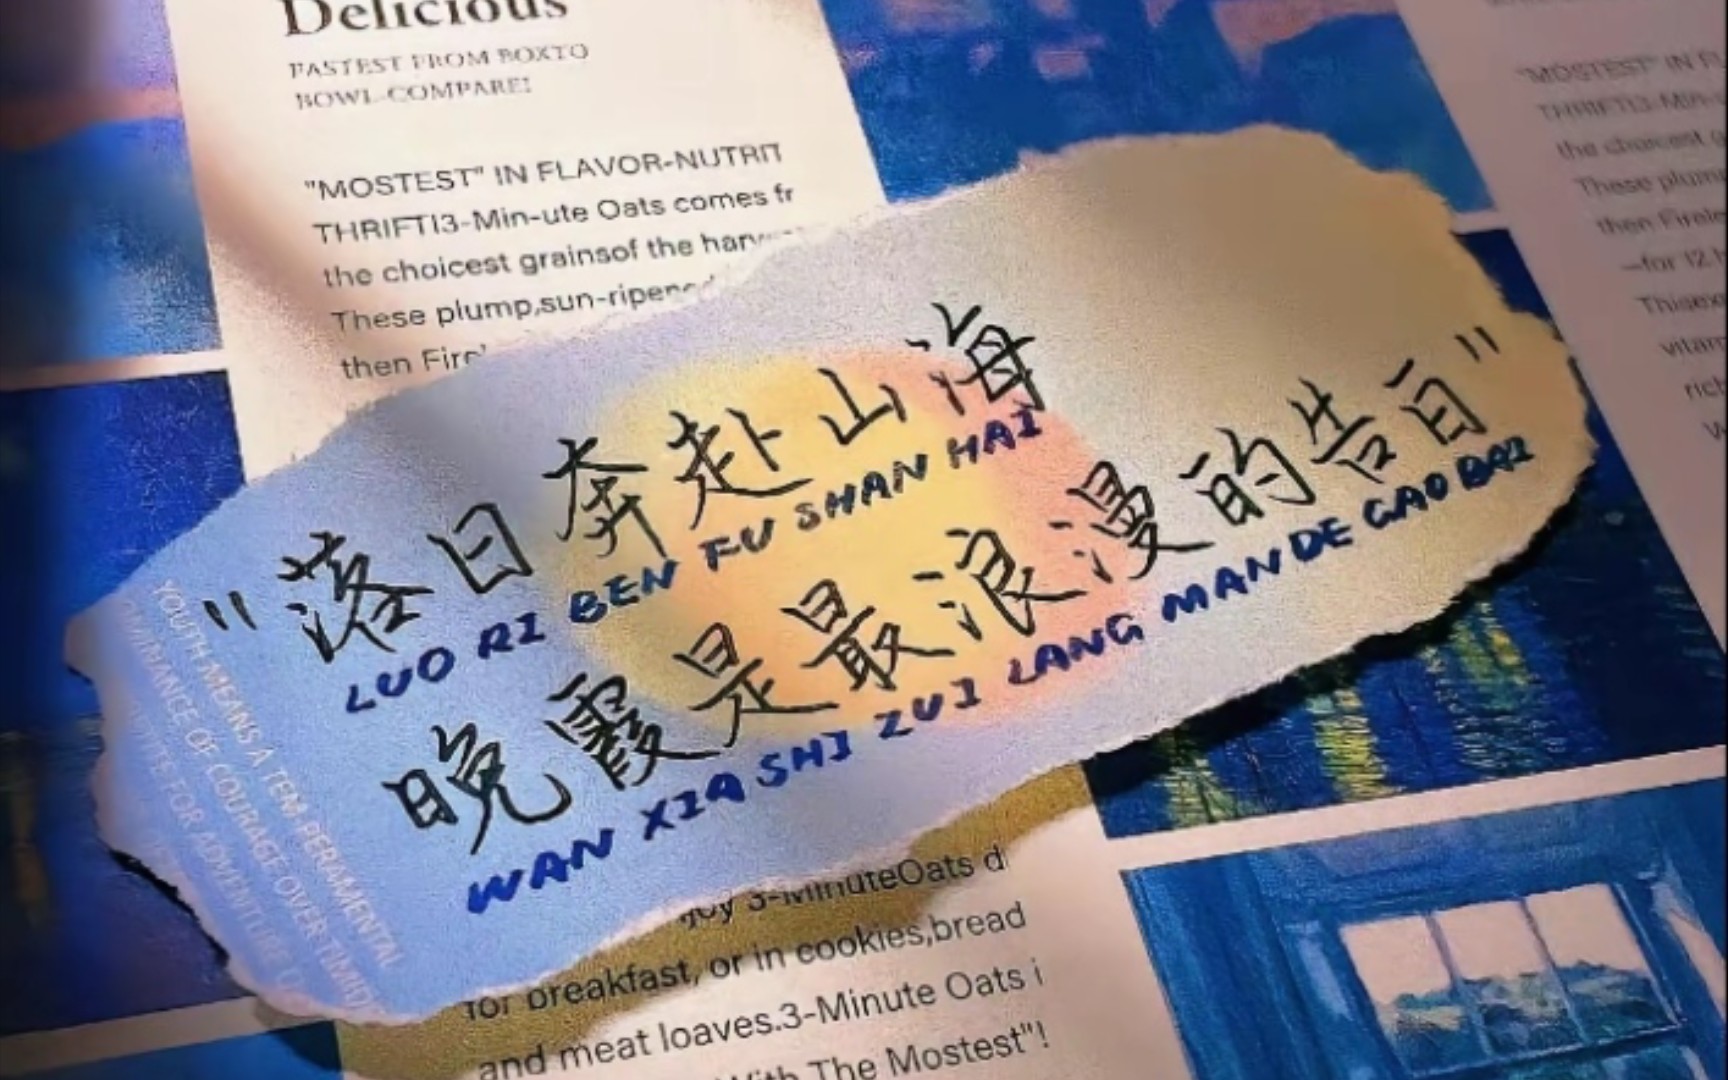 Delicious
FASTEST FROM BOXTO
BOWL-COMPARE!
"MOSTEST" IN FLAVOR-NUTRIT
THRIFTI3-Min-ute Oats comes fr
the choicest grainsof the harv
These plump,sun-ripene
then Fire
"落日奔赴山海
LUO RI BEN FU SHAN HAI
晚霞是最浪漫的告白"
WAN XIA SHI ZUI LANG MAN DE GAO BAI
YOUTH MEANS A TEM PERAMENTAL
OMINANCE OF COURAGE OVER TIMID
FOR ADVENTURE
joy 3-MinuteOats d
for breakfast, or in cookies,bread
and meat loaves.3-Minute Oats i
With The Mostest"!
"MOSTEST" IN FL
THRIFTI3-Min-u
the choicest g
These plump
then Firele
—for 12 h
Thisex
vitam
rich